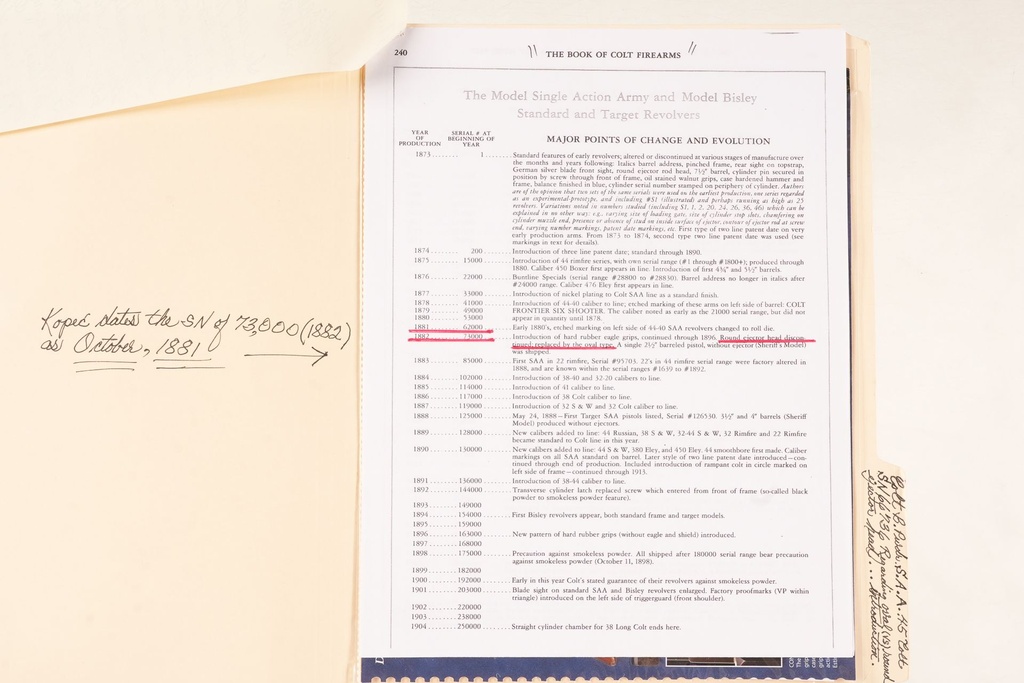 240
" THE BOOK OF COLT FIREARMS "
The Model Single Action Army and Model Bisley
Standard and Target Revolvers
YEAR OF PRODUCTION SERIAL # AT BEGINNING OF YEAR MAJOR POINTS OF CHANGE AND EVOLUTION
1873........ 1..... Standard features of early revolvers; altered or discontinued at various stages of manufacture over
the months and years following: Italics barrel address, pinched frame, rear sight on topstrap,
German silver blade front sight, round ejector rod head, 7½" barrel, cylinder pin secured in
position by screw through front of frame, oil stained walnut grips, case hardened hammer and
frame, balance finished in blue, cylinder serial number stamped on periphery of cylinder. Authors
are of the opinion that two sets of the same serials were used on the earliest production, one series regarded
as an experimental-prototype, and including #S1 (illustrated) and perhaps running as high as 25
revolvers. Variations noted in numbers studied (including S1, 1, 2, 20, 24, 26, 36, 46) which can be
explained in no other way: e.g., varying size of loading gate, size of cylinder stop slots, chamfering on
cylinder muzzle end, presence or absence of stud on inside surface of ejector, contour of ejector rod at screw
end, varying number markings, patent date markings, etc. First type of two line patent date on very
early production arms. From 1873 to 1874, second type two line patent date was used (see
markings in text for details).
1874........ 200....... Introduction of three line patent date; standard through 1890.
1875........ 15000....... Introduction of 44 rimfire series, with own serial range (#1 through #1800+); produced through
1880. Caliber 450 Boxer first appears in line. Introduction of first 4¾" and 5½" barrels.
1876........ 22000....... Buntline Specials (serial range #28800 to #28830). Barrel address no longer in italics after
#24000 range. Caliber 476 Eley first appears in line.
1877........ 33000....... Introduction of nickel plating to Colt SAA line as a standard finish.
1878........ 41000....... Introduction of 44-40 caliber to line; etched marking of these arms on left side of barrel: COLT
1879........ 49000 FRONTIER SIX SHOOTER. The caliber noted as early as the 21000 serial range, but did not
1880........ 53000 appear in quantity until 1878.
1881........ 62000....... Early 1880's, etched marking on left side of 44-40 SAA revolvers changed to roll die.
1882........ 73000....... Introduction of hard rubber eagle grips, continued through 1896. Round ejector head discon-
tinued; replaced by the oval type. A single 2½" barreled pistol, without ejector (Sheriff's Model)
was shipped.
1883........ 85000....... First SAA in 22 rimfire, Serial #95703. 22's in 44 rimfire series were factory altered in
1888, and are known within the serial ranges #1639 to #1892.
1884........ 102000....... Introduction of 38-40 and 32-20 calibers to line.
1885........ 114000....... Introduction of 41 caliber to line.
1886........ 117000....... Introduction of 38 Colt caliber to line.
1887........ 119000....... Introduction of 32 S & W and 32 Colt caliber to line.
1888........ 125000....... May 24, 1888—First Target SAA pistols listed, Serial #126530. 3½" and 4" barrels (Sheriff
Model) produced without ejectors.
1889........ 128000....... New calibers added to line: 44 Russian, 38 S & W, 32-44 S & W, 32 Rimfire and 22 Rimfire
became standard to Colt line in this year.
1890........ 130000....... New calibers added to line: 44 S & W, 380 Eley, and 450 Eley. 44 smoothbore first made. Caliber
markings on all SAA standard on barrel. Later style of two line patent date introduced—con-
tinued through end of production. Included introduction of rampant colt in circle marked on
left side of frame—continued through 1913.
1891........ 136000....... Introduction of 38-44 caliber to line.
1892........ 144000....... Transverse cylinder latch replaced screw which entered from front of frame (so-called black
powder to smokeless powder feature).
1893........ 149000
1894........ 154000....... First Bisley revolvers appear, both standard frame and target models.
1895........ 159000
1896........ 163000....... New pattern of hard rubber grips (without eagle and shield) introduced.
1897........ 168000
1898........ 175000....... Precaution against smokeless powder. All shipped after 180000 serial range bear precaution
against smokeless powder (October 11, 1898).
1899........ 182000
1900........ 192000....... Early in this year Colt's stated guarantee of their revolvers against smokeless powder.
1901........ 203000....... Blade sight on standard SAA and Bisley revolvers enlarged. Factory proofmarks (VP within
triangle) introduced on the left side of triggerguard (front shoulder).
1902........ 220000
1903........ 238000
1904........ 250000....... Straight cylinder chamber for 38 Long Colt ends here.
Kopec states the SN of 73,000 (1882)
as October, 1881
Colt B. P. S.A.A. .45 Colt
SN 66736 Regarding oval (vs) round
ejector head... introduction.